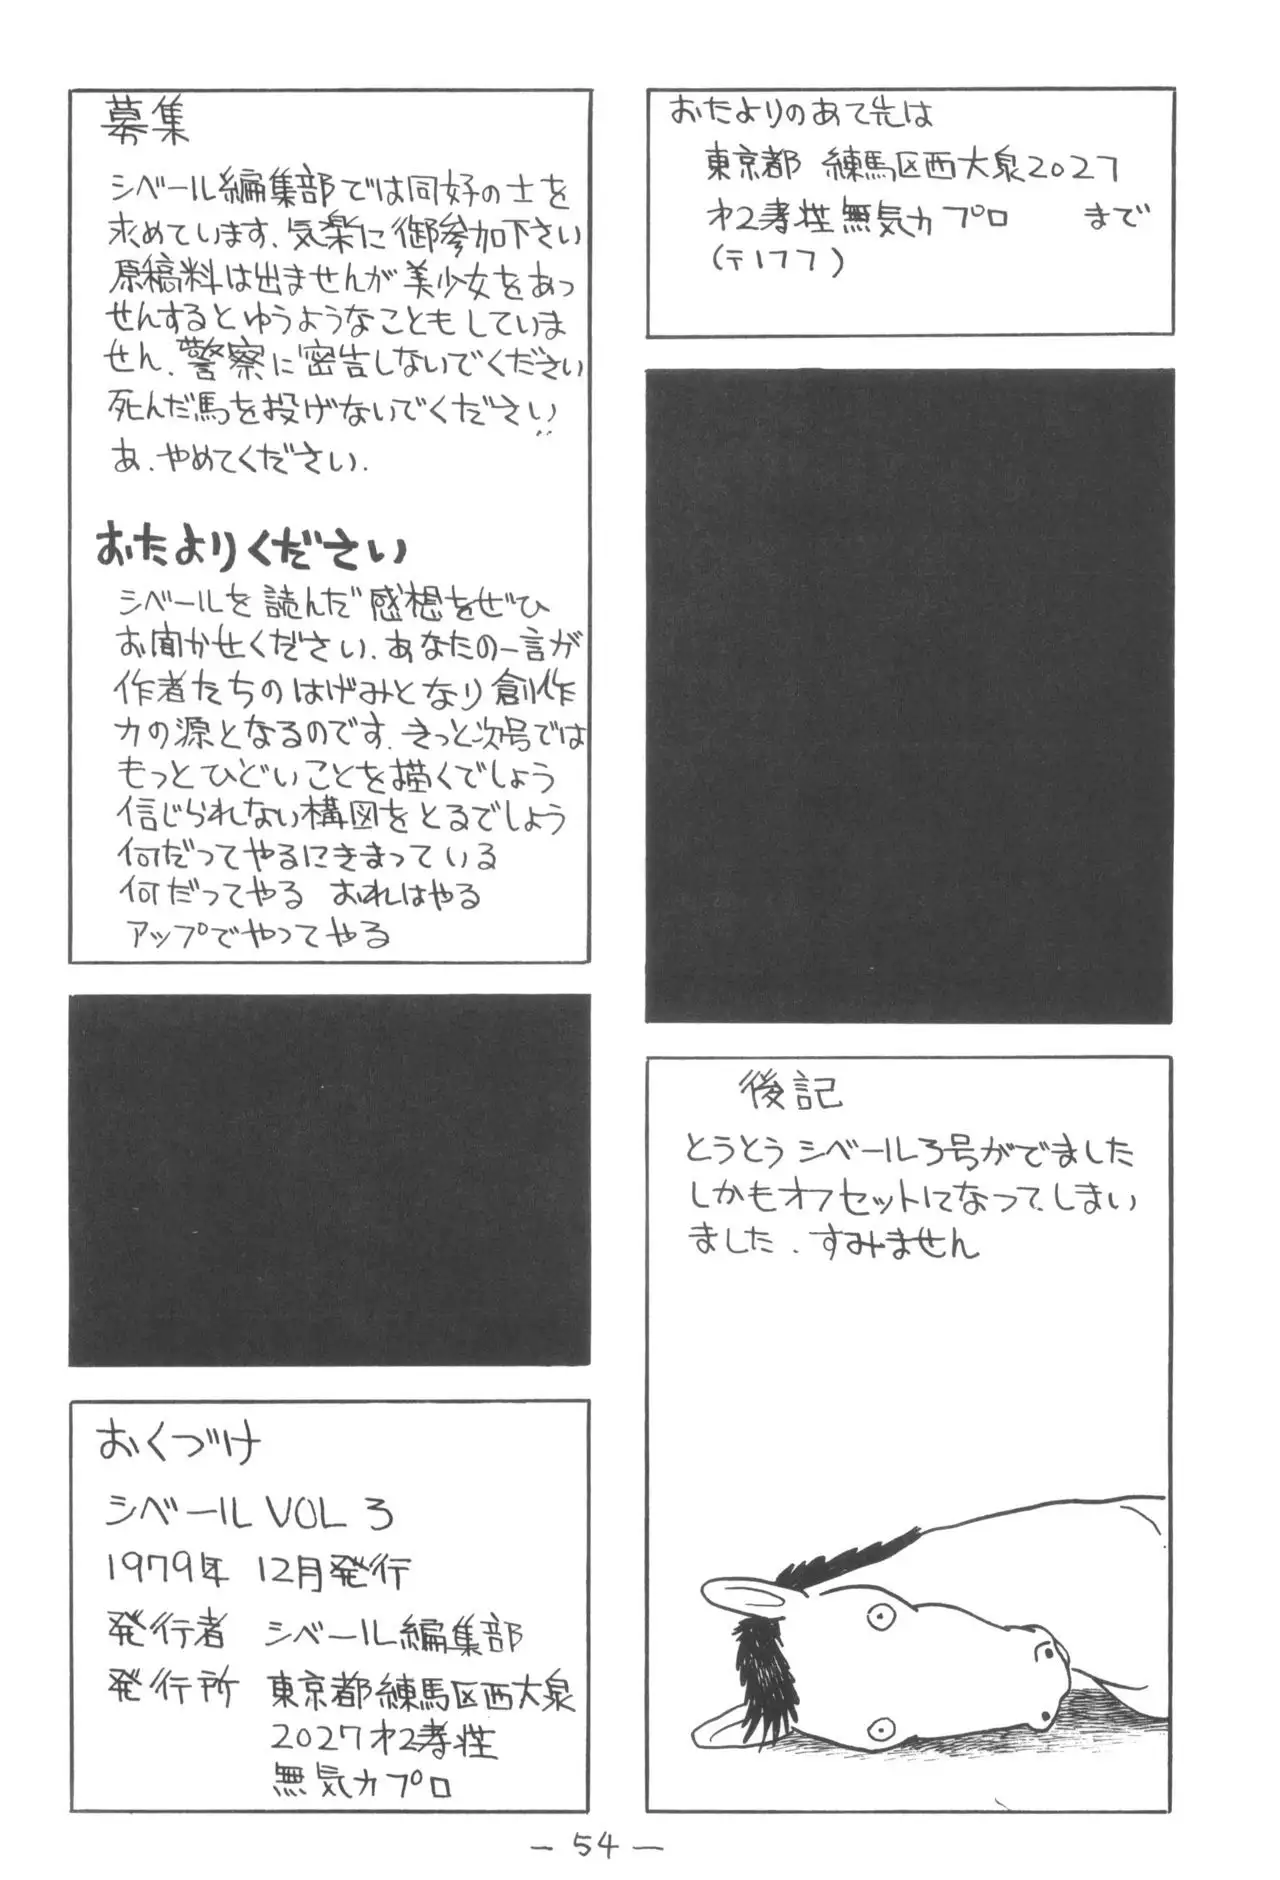 募集
シベール編集部では同好の士を
求めています、気楽に御参加下さい
原稿料は出ませんが美少女をあっ
せんするとゆうようなこともしていま
せん、警察に密告しないでください
死んだ馬を投げないでください
あ、やめてください.
おたよりください
シベールを読んだ感想をぜひ
お聞かせください、あなたの一言が
作者たちのはげみとなり創作
力の源となるのです、きっと次号では
もっとひどいことを描くでしょう
信じられない構図をとるでしょう
何だってやるにきまっている
何だってやる おれはやる
アップでやってやる
おくづけ
シベール VOL 3
1979年 12月発行
発行者 シベール編集部
発行所 東京都練馬区西大泉
2027 才2孝荘
無気力プロ
おたよりのあて先は
東京都 練馬区西大泉2027
才2孝荘無気力プロ まで
(〒177)
後記
とうとうシベール3号がでました
しかもオフセットになってしまい
ました、すみません
— 54 —